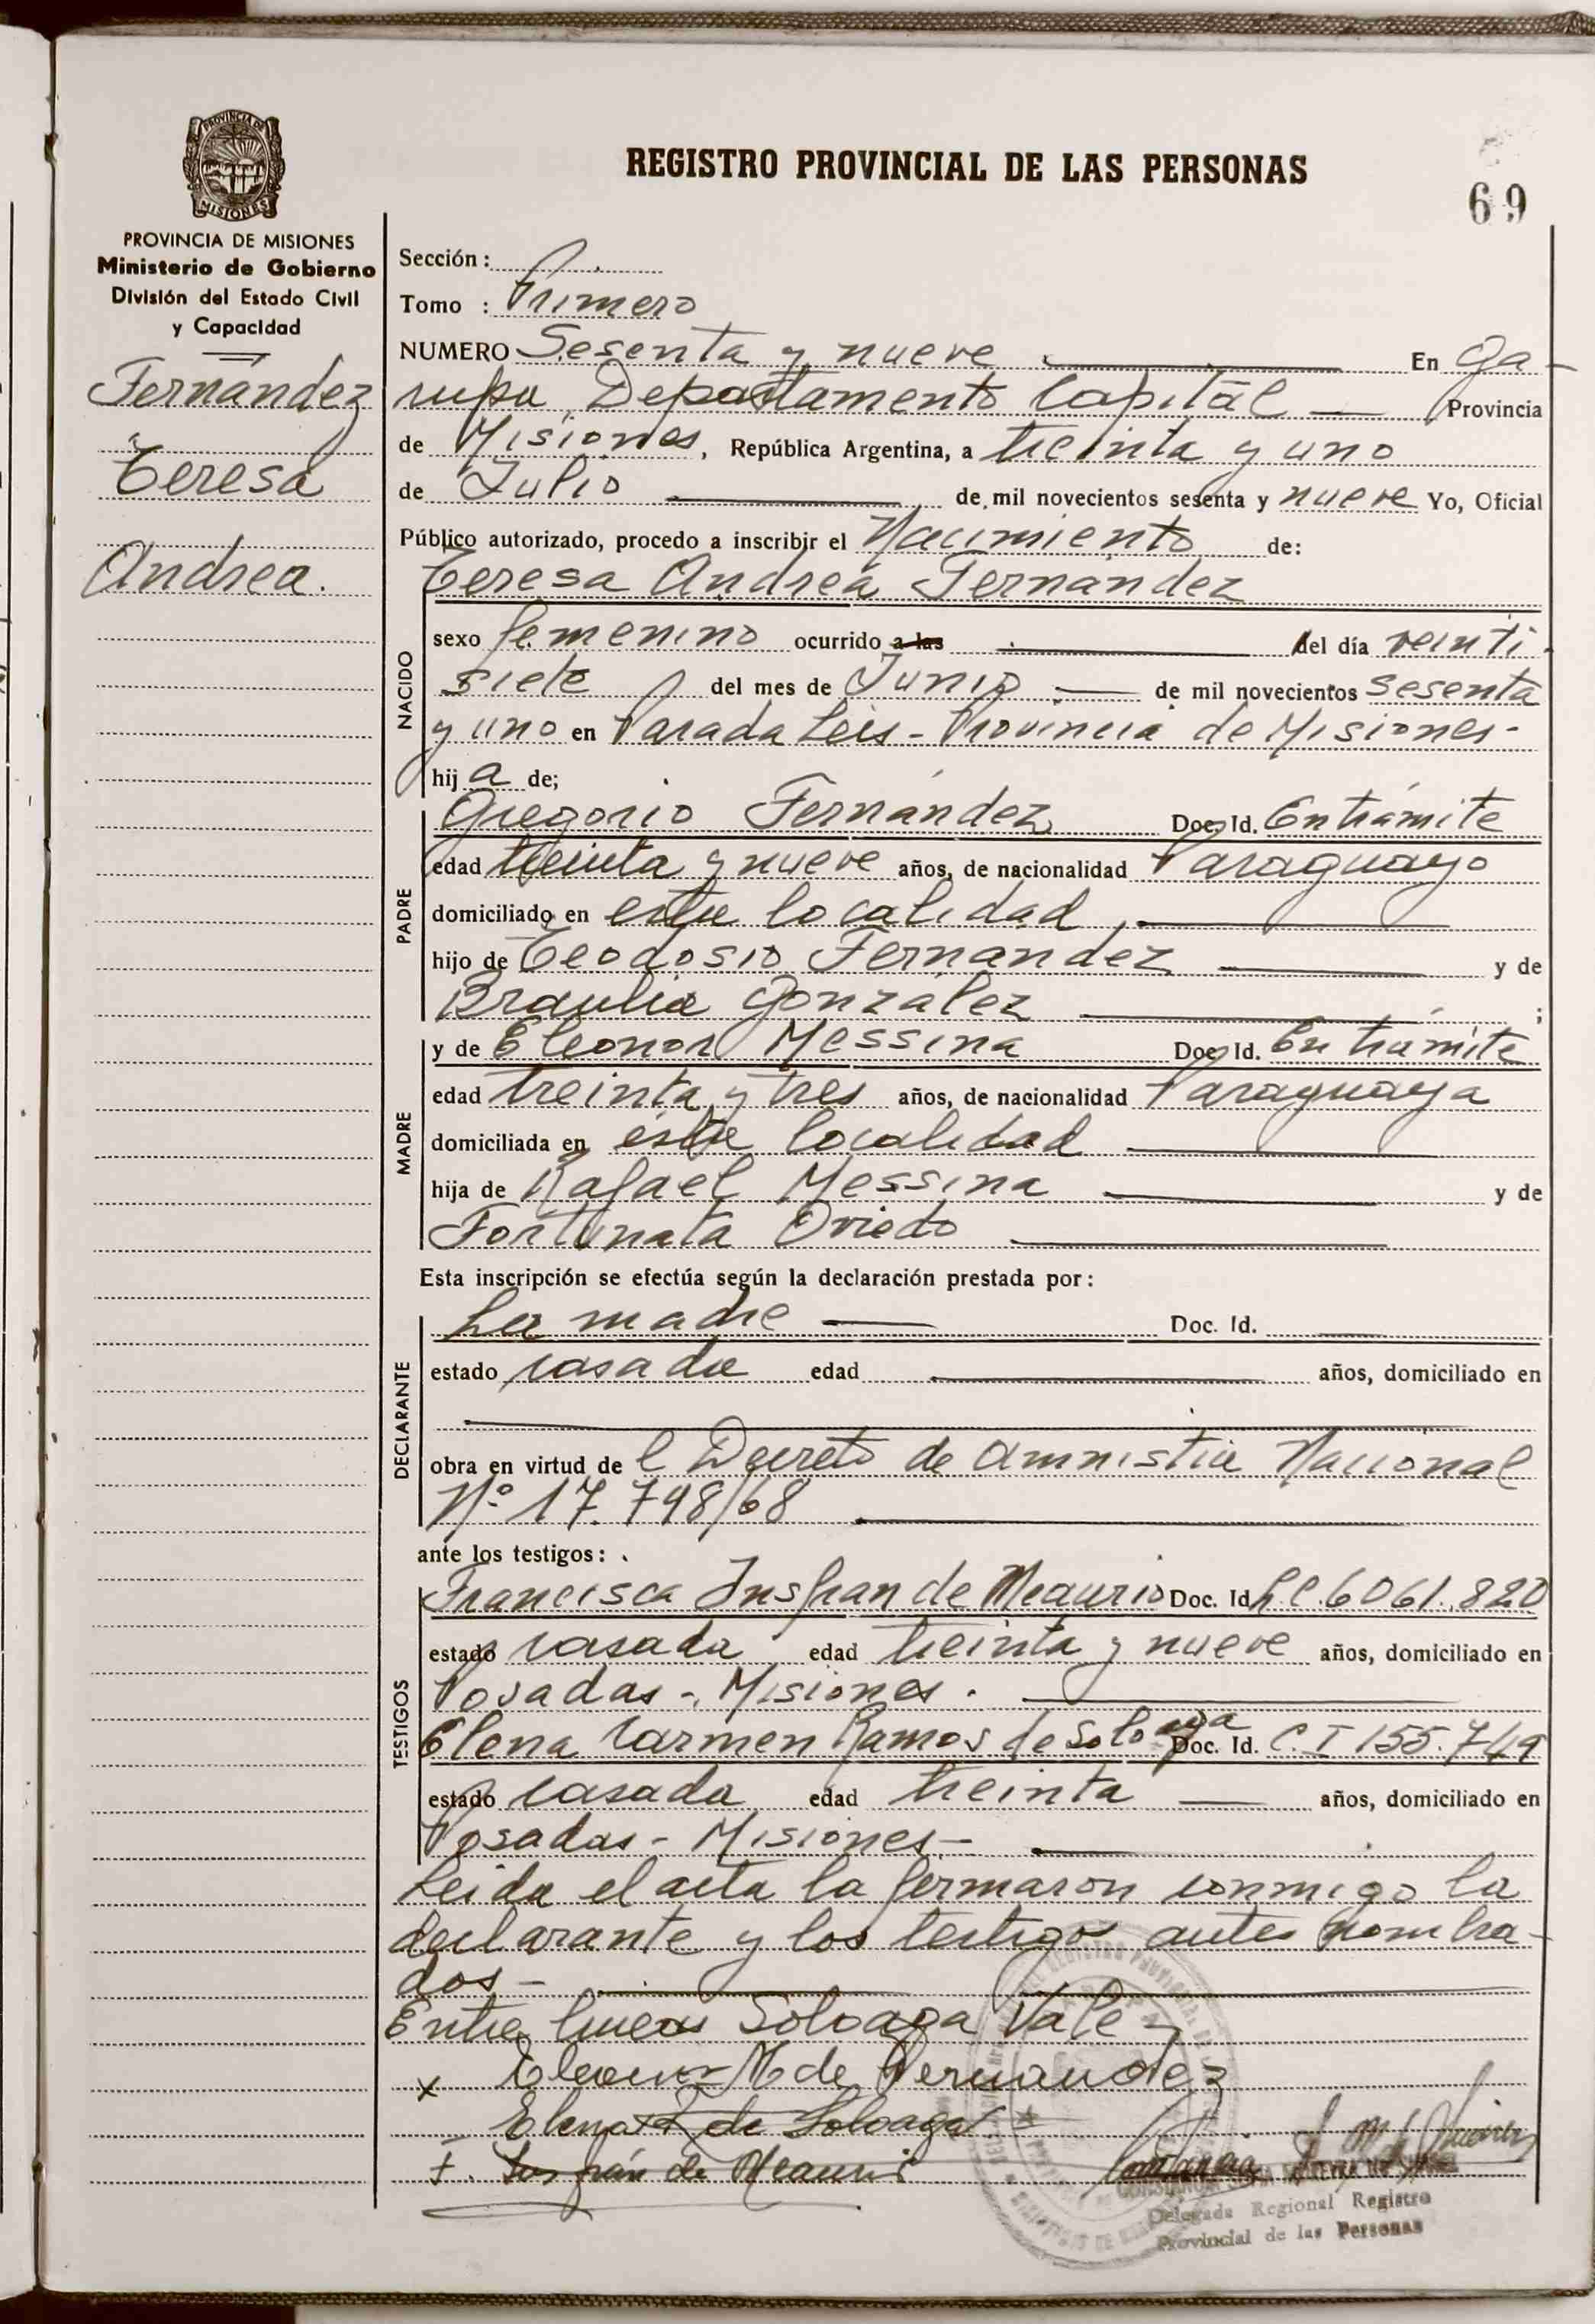 REGISTRO PROVINCIAL DE LAS PERSONAS
69
PROVINCIA DE MISIONES
MISIONES
PROVINCIA DE MISIONES
Ministerio de Gobierno
División del Estado Civil
y Capacidad
Fernández
Teresa
Andrea.
Sección :
Tomo : Primero
NUMERO Sesenta y nueve En Ga-
rupa, Departamento Capital — Provincia
de Misiones, República Argentina, a treinta y uno
de Julio de mil novecientos sesenta y nueve Yo, Oficial
Público autorizado, procedo a inscribir el Nacimiento de:
Teresa Andrea Fernández
NACIDO
sexo femenino ocurrido a las del día veinti-
siete del mes de Junio — de mil novecientos sesenta
y uno en Parada Leis - Provincia de Misiones-
hija de;
PADRE
Gregorio Fernández Doc. Id. En trámite
edad treinta y nueve años, de nacionalidad Paraguayo
domiciliado en esta localidad,
hijo de Teodosio Fernandez y de
Braulia González ;
MADRE
y de Eleonor Messina Doc. Id. En trámite
edad treinta y tres años, de nacionalidad Paraguaya
domiciliada en esta localidad
hija de Rafael Messina y de
Fortunata Oviedo
Esta inscripción se efectúa según la declaración prestada por :
DECLARANTE
La madre — Doc. Id.
estado casada edad años, domiciliado en
obra en virtud de l Decreto de Amnistia Nacional
Nº 17.798/68
ante los testigos :
TESTIGOS
Francisca Insfran de Meaurio Doc. Id. L.C. 6061.820
estado casada edad treinta y nueve años, domiciliado en
Posadas - Misiones.
Elena Carmen Ramos de Soloaga Doc. Id. C.I 155.749
estado casada edad treinta — años, domiciliado en
Posadas - Misiones-
Leida el acta la firmaron conmigo la
declarante y los testigos antes nombra-
dos-
Entre lineas Soloaga Vale
x Eleonor M de Fernandez
Elena R de Soloaga
F. Insfrán de Meaurio
Delegada Regional Registro
Provincial de las Personas